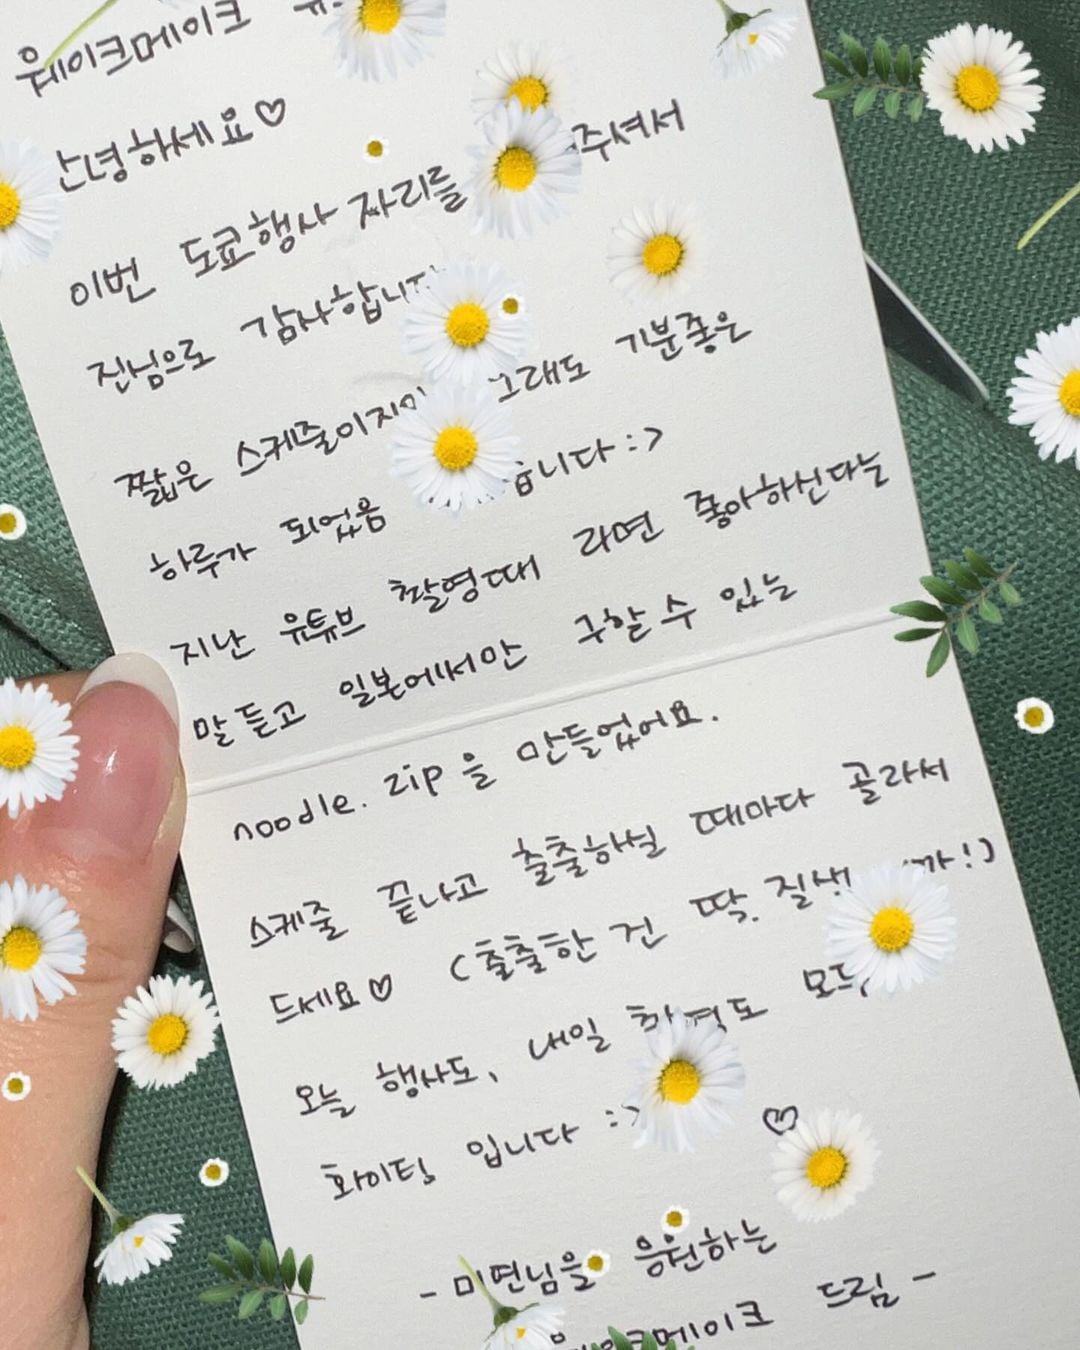 웨이크메이크
안녕하세요♡
이번 도쿄행사 자리를 주셔서
진심으로 감사합니다
짧은 스케줄이지만 그래도 기분좋은
하루가 되었음 습니다 :>
지난 유튜브 촬영때 라면 좋아하신다는
말 듣고 일본에서만 구할 수 있는
noodle. zip 을 만들었어요.
스케줄 끝나고 출출하실 때마다 골라서
드세요♡ (출출한 건 딱. 질색 까!)
오늘 행사도, 내일 도 모두
화이팅 입니다 :> ♡
- 미연님을 응원하는
웨이크메이크 드림 -